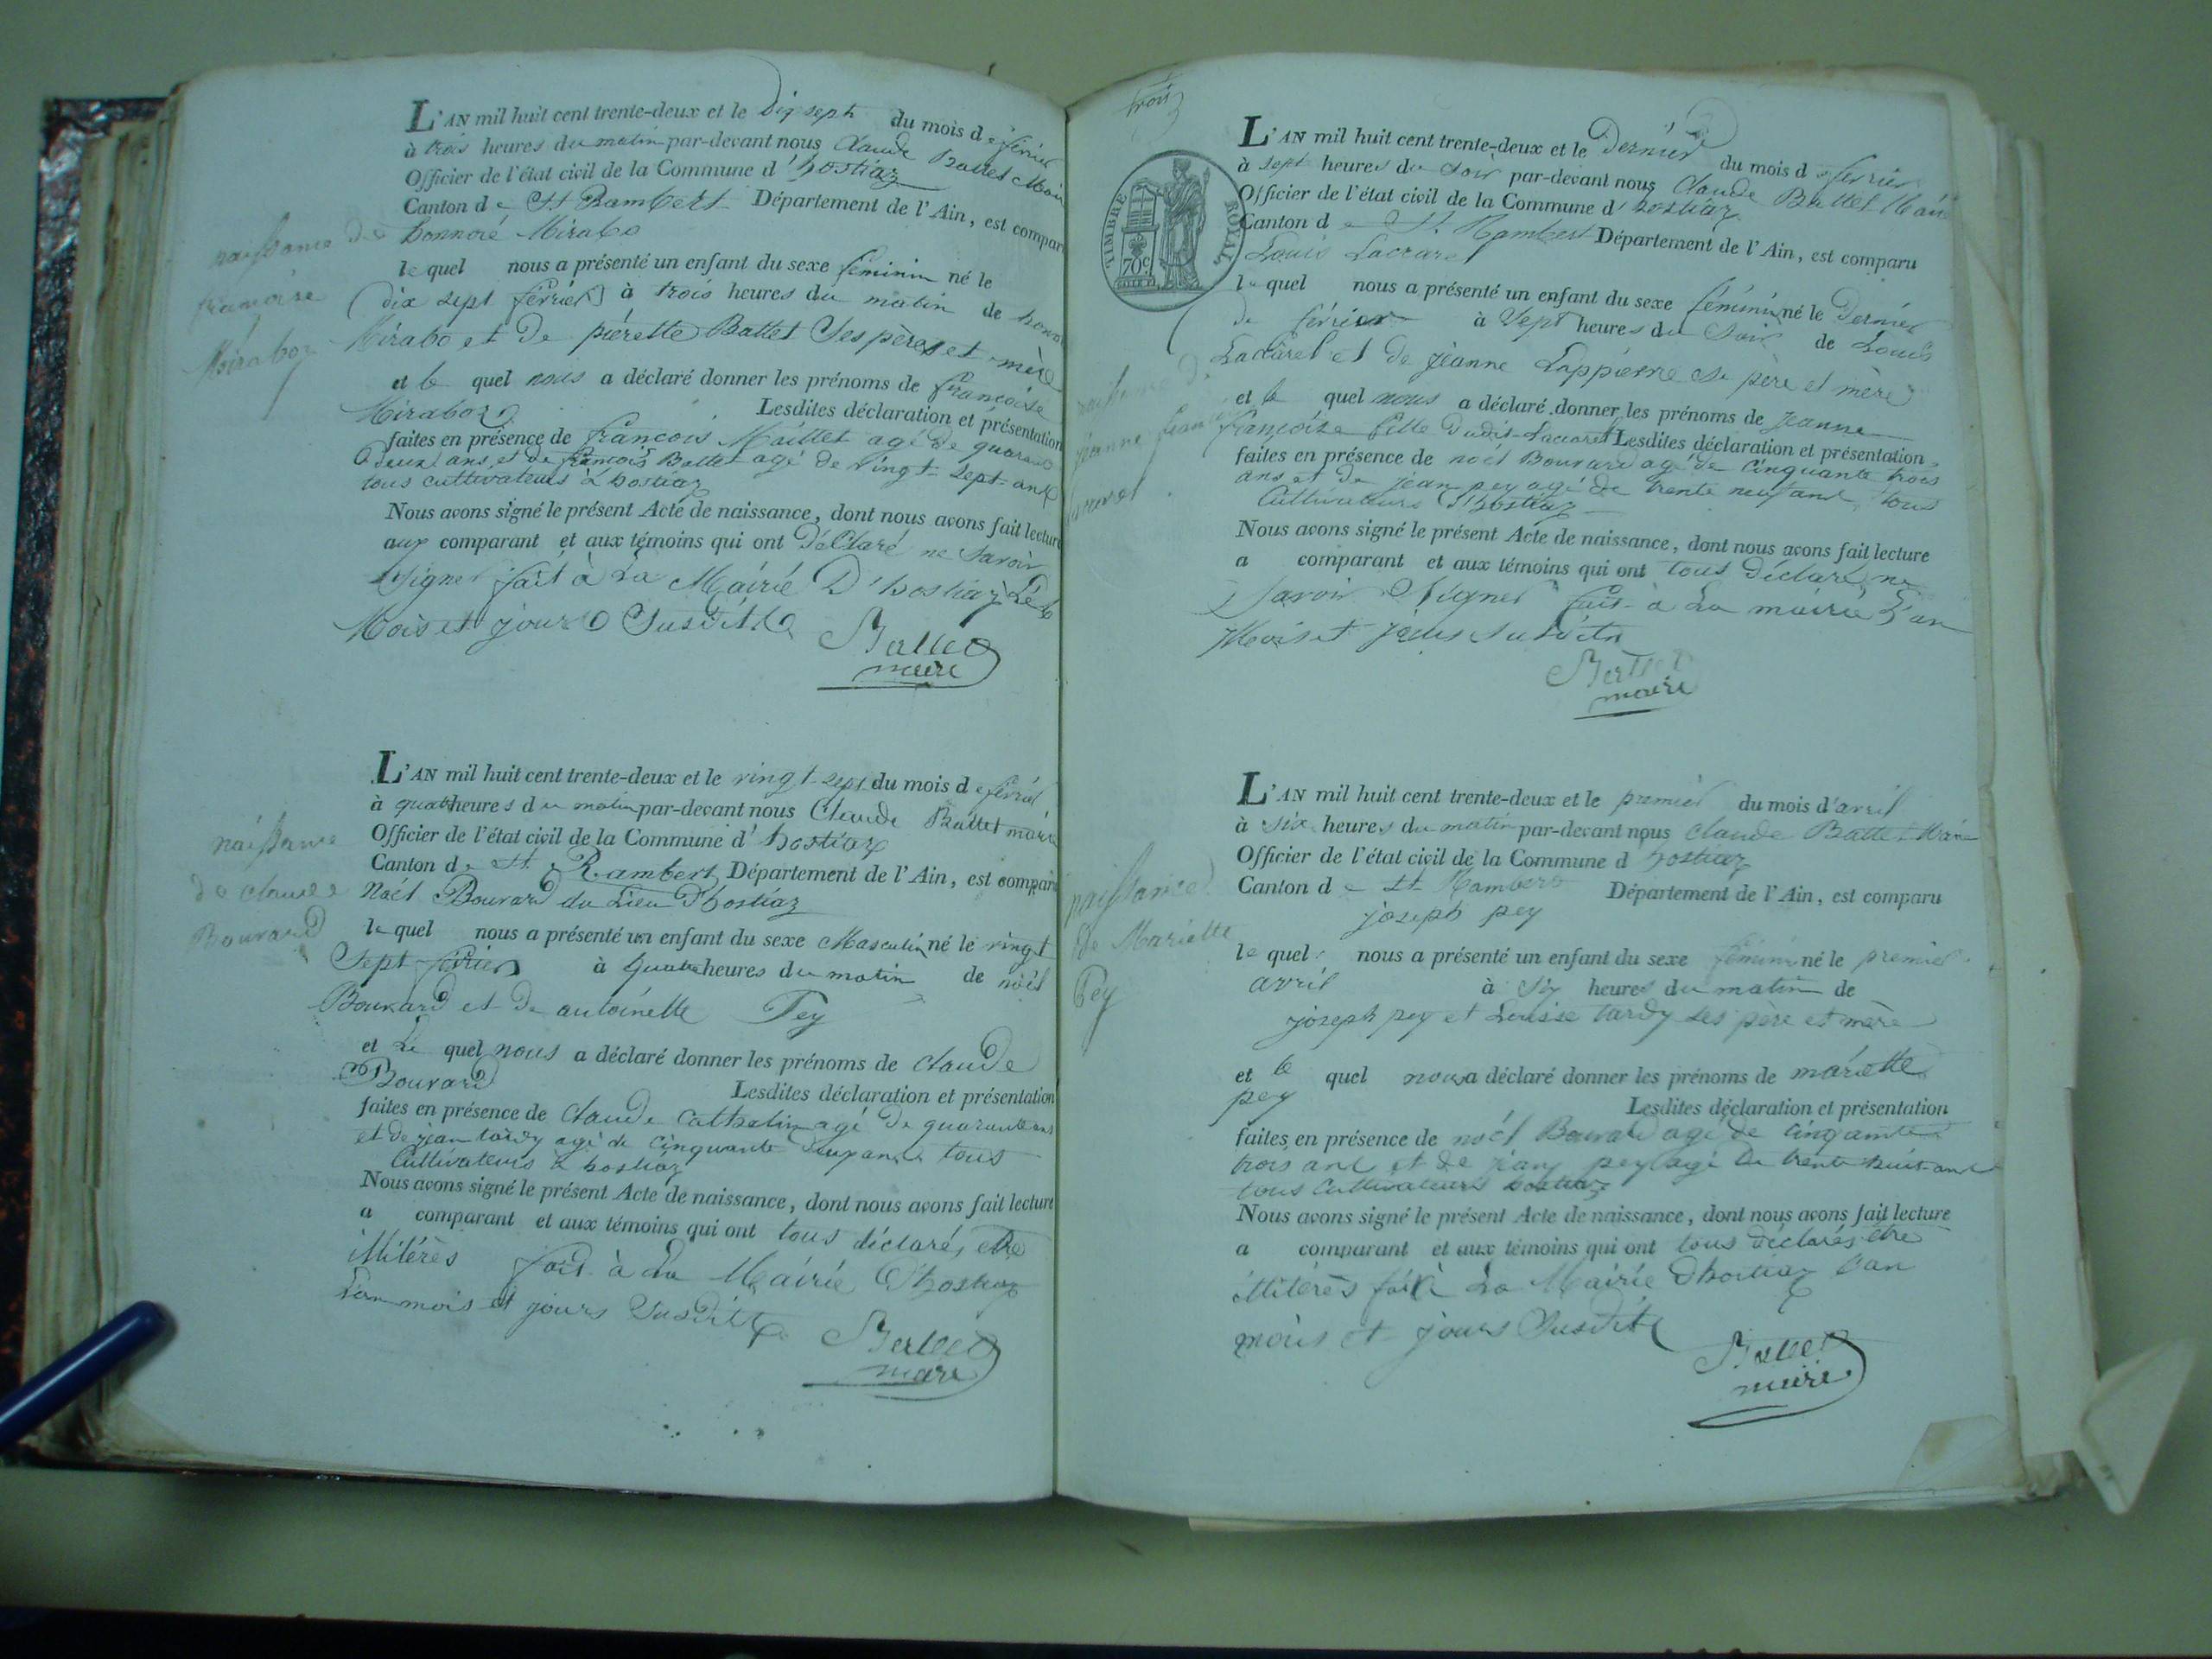 L'AN mil huit cent trente-deux et le Dix sept du mois de février
à trois heures du matin par-devant nous Claude Battet Maire
Officier de l'état civil de la Commune d'hostiaz
Canton de St Rambert Département de l'Ain, est comparu
honnoré Mirabo
naissance de
françoise
Miraboz
le quel nous a présenté un enfant du sexe féminin né le
dix sept février à trois heures du matin de
Mirabo et de piérette Battet Ses pères et mère
et le quel nous a déclaré donner les prénoms de françoise
Miraboz Lesdites déclaration et présentation
faites en présence de françois Maillet agé de quarante
deux ans, et de françois Battet agé de vingt-sept-ans
tous cultivateurs à hostiaz
Nous avons signé le présent Acte de naissance, dont nous avons fait lecture
aux comparant et aux témoins qui ont Déclaré ne Savoir
Signer fait à La Mairie D'hostiaz
Mois et jour Susdits
Battet
maire
L'AN mil huit cent trente-deux et le vingt sept du mois de février
à quatre heures du matin par-devant nous Claude Battet maire
Officier de l'état civil de la Commune d'hostiaz
Canton de St. Rambert Département de l'Ain, est comparu
Noël Bouvard du Lieu d'hostiaz
naissance
de claude
Bouvard
le quel nous a présenté un enfant du sexe Masculin né le vingt
Sept février à quatre heures du matin de noël
Bouvard et de antoinette Pey
et Le quel nous a déclaré donner les prénoms de claude
Bouvard Lesdites déclaration et présentation
faites en présence de claude cathelin agé de quarante ans
et de jean tardy agé de cinquante deux ans tous
Cultivateurs à hostiaz
Nous avons signé le présent Acte de naissance, dont nous avons fait lecture
a comparant et aux témoins qui ont tous déclarés etre
illitérès fait à La Mairie D'hostiaz
L'an mois et jours Susdits
Battet
maire
trois
TIMBRE ROYAL
70c
L'AN mil huit cent trente-deux et le Dernier du mois de février
à sept heures du Soir par-devant nous Claude Battet Maire
Officier de l'état civil de la Commune d'hostiaz
Canton de St. Rambert Département de l'Ain, est comparu
Louis Laccarel
le quel nous a présenté un enfant du sexe féminin né le Dernier
de février à Sept heures du Soir de Louis
Laccarel et de jeanne Lappierre Se père et mère
jeanne
et le quel nous a déclaré donner les prénoms de jeanne
françoise fille dudit Laccarel Lesdites déclaration et présentation
faites en présence de noël Bouvard agé de cinquante trois
ans et de jean pey agé de trente neuf ans tous
Cultivateurs d'hostiaz
Nous avons signé le présent Acte de naissance, dont nous avons fait lecture
a comparant et aux témoins qui ont tous déclaré ne
Savoir Signer fait à La mairie L'an
Mois et jours susdits
maire
L'AN mil huit cent trente-deux et le premier du mois d'avril
à six heures du matin par-devant nous Claude Battet Maire
Officier de l'état civil de la Commune d hostiaz
Canton de St Rambert Département de l'Ain, est comparu
joseph pey
naissance
de Mariette
Pey
le quel nous a présenté un enfant du sexe féminin né le premier
avril à six heures du matin de
joseph pey et Louise tardy ses père et mère
et le quel nous a déclaré donner les prénoms de mariette
pey Lesdites déclaration et présentation
faites en présence de noël Bouvard agé de cinquante
trois ans et de jean pey agé de trente huit ans
tous Cultivateurs hostiaz
Nous avons signé le présent Acte de naissance, dont nous avons fait lecture
a comparant et aux témoins qui ont tous déclarés être
illitérès fait à La Mairie d'hostiaz L'an
mois et jours Susdits
Battet
maire